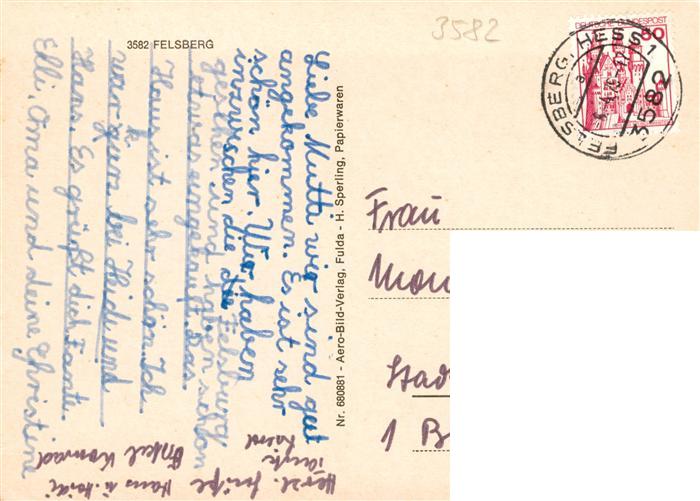 3582
3582 FELSBERG
DEUTSCHE BUNDESPOST
60
FELSBERG, HESS 1
3582
Liebe Mutti wir sind gut
angekommen. Es ist sehr
schön hier. Wir haben
inzwischen die die Felsburg
gesehen und haben schon
etwas eingekauft. Das
Haus ist sehr schön. Ich
war gern bei Heide und
Hans. Es grüßt dich Tante
Elli, Oma und deine Christine
Herzl. Grüße Hans u. Heidi
Onkel Konrad
Nr. 680881 - Aero-Bild-Verlag, Fulda - H. Sperling, Papierwaren
Frau
Mon
Stad
1 B